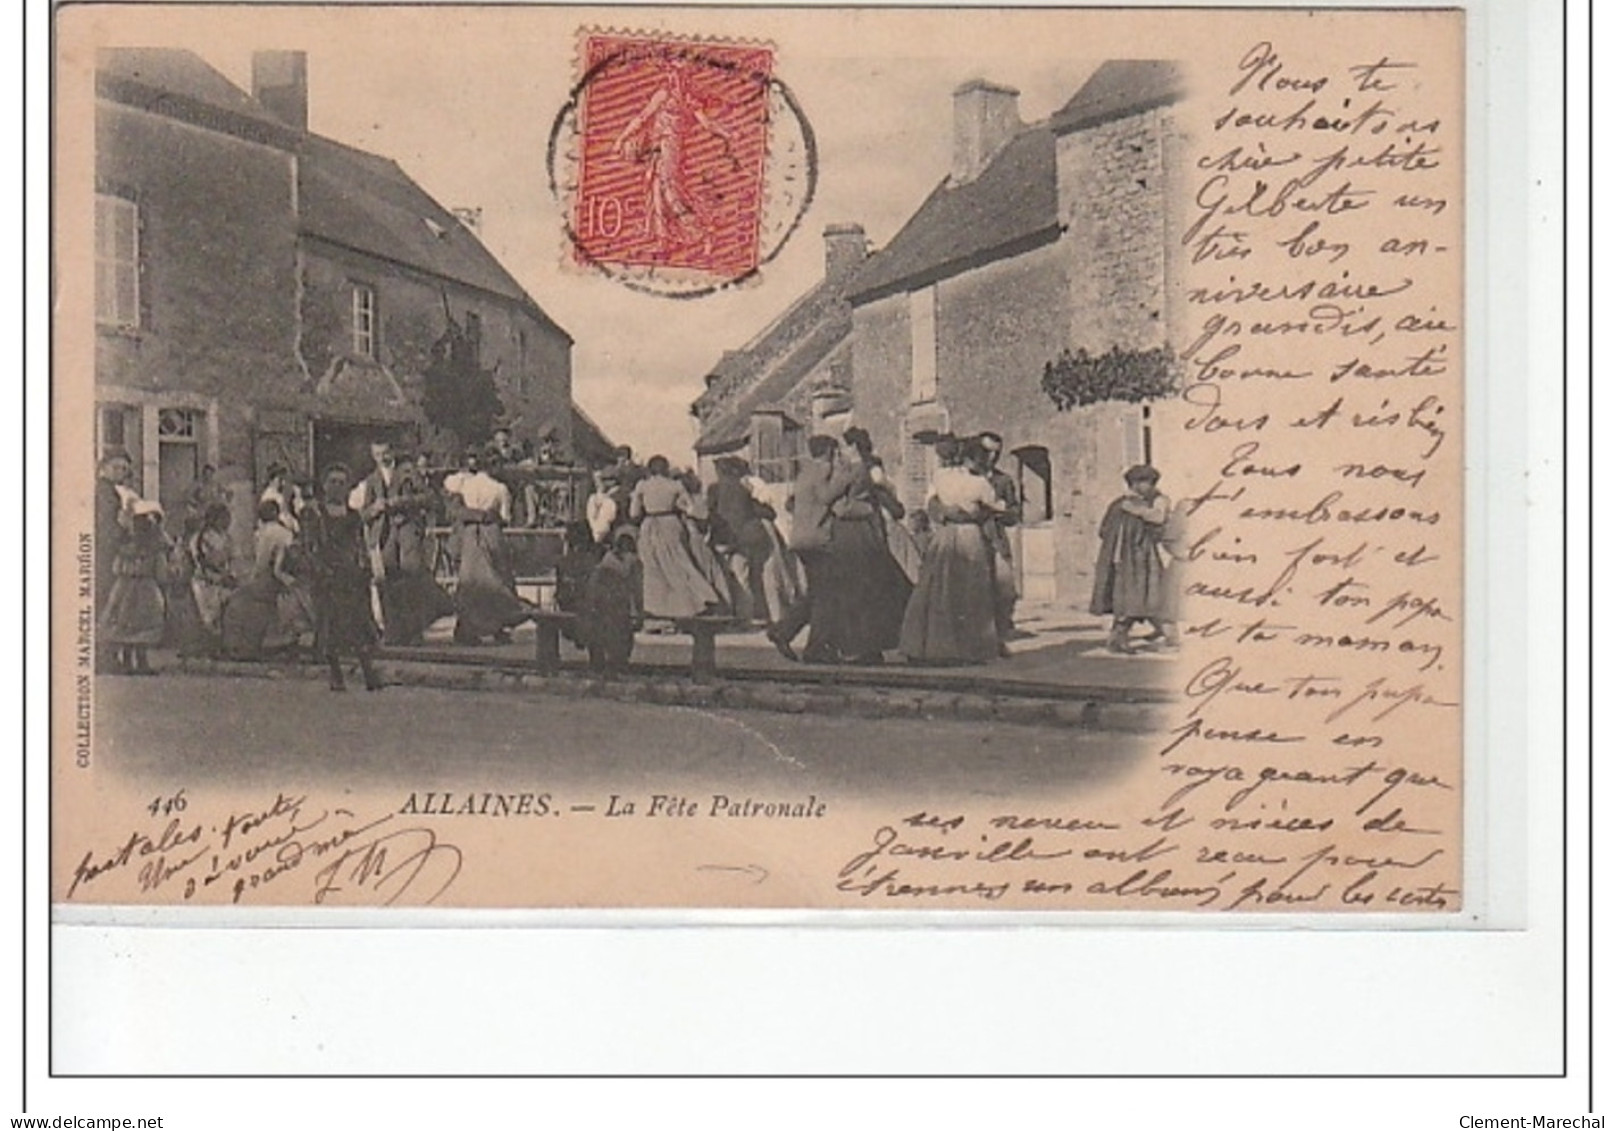 Nous te
souhaitons
chère petite
Gilberte un
très bon an-
niversaire
grandis, aie
bonne santé
dors et ris bien
Tous nous
t'embrassons
bien fort et
aussi ton papa
et ta maman.
Que ton papa
pense en
voyageant que
ses neveu et nièces de
Janville ont reçu pour
étrennes un album pour les cartes
postales.
Une toute
dévouée
grand'mère
10c
COLLECTION MARCEL MARRON
446
ALLAINES. — La Fête Patronale
delcampe.net
Clement-Marechal